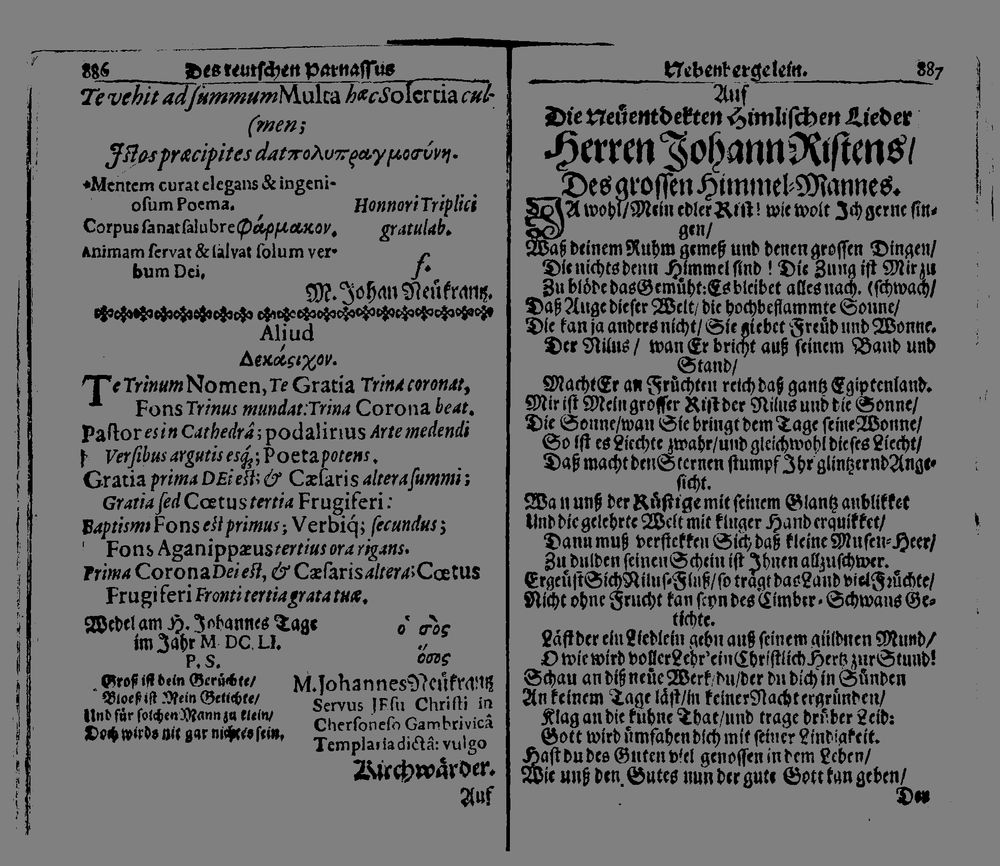 886 Des teutschen Parnassus
Te vehit ad summum Multa hæc Solertia cul-
(men;
Istos præcipites dat πολυπραγμοσύνη.
Mentem curat elegans & ingeni-
osum Poema.
Corpus sanat salubre Φάρμακον.
Animam servat & salvat solum ver-
bum Dei.
Honnori Triplici
gratulab.
f.
M. Johan Neükrantz.
Aliud
Δεκάςιχον.
Te Trinum Nomen, Te Gratia Trina coronat,
Fons Trinus mundat: Trina Corona beat.
Pastor es in Cathedrâ; podalirius Arte medendi
Versibus argutis esq́; Poeta potens.
Gratia prima DEi est; & Cæsaris altera summi;
Gratia sed Cœtus tertia Frugiferi:
Baptismi Fons est primus; Verbiq́; secundus;
Fons Aganippæus tertius ora rigans.
Prima Corona Dei est, & Cæsaris altera; Cœtus
Frugiferi Fronti tertia grata tuæ.
Wedel am H. Johannes Tage
im Jahr M. DC. LI.
P. S.
Groß ist dein Gerüchte/
Bloeß ist Mein Getichte/
Und für solchen Mann zu klein/
Doch wirds nit gar nichtes sein.
ὁ σὸς
ὅσος
M. Johannes Neükrantz
Servus JEsu Christi in
Chersoneso Gambrivicâ
Templaria dictâ: vulgo
Kirchwärder.
Auf
Nebenbergelein. 887
Auf
Die Neüentdekten Himlischen Lieder
Herren Johann Ristens/
Des grossen Himmel-Mannes.
JA wohl/ Mein edler Rist! wie wolt Ich gerne sin-
gen/
Waß deinem Ruhm gemeß und denen grossen Dingen/
Die nichts denn Himmel sind! Die Zung ist Mir zu
Zu blöde das Gemüht: Es bleibet alles nach. (schwach/
Daß Auge dieser Welt/ die hochbeflammte Sonne/
Die kan ja anders nicht/ Sie giebet Freüd und Wonne.
Der Nilus/ wan Er bricht auß seinem Band und
Stand/
Macht Er an Früchten reich daß gantz Egiptenland.
Mir ist Mein grosser Rist der Nilus und die Sonne/
Die Sonne/ wan Sie bringt dem Tage seine Wonne/
So ist es Liechte zwahr/ und gleichwohl dieses Liecht/
Daß macht den Sternen stumpf Ihr glintzernd Ange-
sicht.
Wan unß der Rüstige mit seinem Glantz anblikket
Und die gelehrte Welt mit kluger Hand erquikket/
Dann muß verstekken Sich daß kleine Musen-Heer/
Zu dulden seinen Schein ist Ihnen allzuschwer.
Ergeüst Sich Nilus-Fluß/ so trägt das Land viel Früchte/
Nicht ohne Frucht kan seyn des Cimber-Schwans Ge-
tichte.
Läst der ein Liedlein gehn auß seinem güldnen Mund/
O wie wird voller Lehr' ein Christlich Hertz zur Stund!
Schau an diß neüe Werk/ du/ der du dich in Sünden
An keinem Tage läst/ in keiner Nacht ergründen/
Klag an die kühne That/ und trage drüber Leid:
Gott wird ümfahen dich mit seiner Lindigkeit.
Hast du des Guten viel genossen in dem Leben/
Wie unß den Gutes nun der gute Gott kan geben/
Den